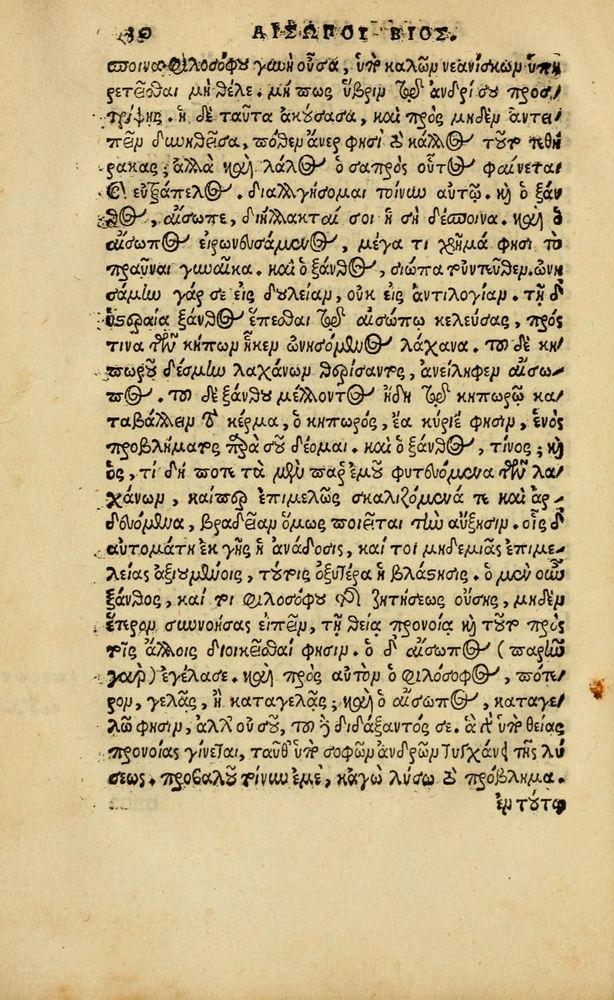 30 ΑΙΣΩΠΟΥ ΒΙΟΣ.
σποινα φιλοσόφου γυνὴ οὖσα, ὑπὸ καλῶν νεανίσκων ὑπη
ρετεῖσθαι μὴ θέλε. μή πως ὕβριν τῷ ἀνδρί σου προσ
τρίψῃς. ἡ δὲ ταῦτα ἀκούσασα, καὶ πρὸς μηδὲν ἀντει
πεῖν δυνηθεῖσα, πόθεν ἄνερ φησὶ τὸ κάλλος τοῦτο τεθή
ρακας; ἀλλὰ καὶ λάλος ὁ σαπρὸς οὗτος φαίνεται
καὶ εὐτράπελος. διαλλαγήσομαι τοίνυν αὐτῷ. καὶ ὁ ξάν
θος, αἴσωπε, διήλλακταί σοι ἡ σὴ δέσποινα. καὶ ὁ
αἴσωπος εἰρωνευσάμενος, μέγα τι χρῆμά φησι τὸ
πραῧναι γυναῖκα. καὶ ὁ ξάνθος, σιώπα τοὐντεῦθεν. ὠνη
σάμην γάρ σε εἰς δουλείαν, οὐκ εἰς ἀντιλογίαν. τῇ δ'
ὑστεραίᾳ ξάνθος ἕπεσθαι τῷ αἰσώπῳ κελεύσας, πρός
τινα τῶν κήπων ἧκεν ὠνησόμενος λάχανα. τοῦ δὲ κη
πωροῦ δέσμην λαχάνων θερίσαντος, ἀνείληφεν αἴσω
πος. τοῦ δὲ ξάνθου μέλλοντος ἤδη τῷ κηπωρῷ κα
ταβάλλειν τὸ κέρμα, ὁ κηπωρός, ἔα κύριέ φησιν, ἑνὸς
προβλήματος παρὰ σοῦ δέομαι. καὶ ὁ ξάνθος, τίνος; καὶ
ὅς, τί δή ποτε τὰ μὲν παρ' ἐμοῦ φυτευόμενα τῶν λα
χάνων, καίπερ ἐπιμελῶς σκαλιζόμενά τε καὶ ἀρ
δευόμενα, βραδεῖαν ὅμως ποιεῖται τὴν αὔξησιν. οἷς δ'
αὐτομάτη ἐκ γῆς ἡ ἀνάδοσις, καί τοι μηδεμιᾶς ἐπιμε
λείας ἀξιουμένοις, τούτοις ὀξυτέρα ἡ βλάστησις. ὁ μὲν οὖν
ξάνθος, καί τοι φιλοσόφου τῆς ζητήσεως οὔσης, μηδὲν
ἕτερον συννοήσας εἰπεῖν, τῇ θείᾳ προνοίᾳ καὶ τοῦτο πρὸς
τοῖς ἄλλοις διοικεῖσθαί φησιν. ὁ δ' αἴσωπος (παρῆν
γὰρ) ἐγέλασε. καὶ πρὸς αὐτὸν ὁ φιλόσοφος, πότε
ρον, γελᾷς, ἢ καταγελᾷς; καὶ ὁ αἴσωπος, καταγε
λῶ φησιν, ἀλλ' οὐ σοῦ, τοῦ δὲ διδάξαντός σε. ἃ γὰρ ὑπὸ θείας
προνοίας γίνεται, ταῦθ' ὑπὸ σοφῶν ἀνδρῶν τυγχάνει τῆς λύ
σεως. προβαλοῦ τοίνυν ἐμέ, κἀγὼ λύσω τὸ πρόβλημα.
ἐν τούτῳ